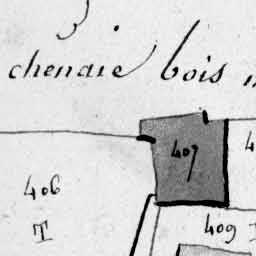 chenaie bois
407
406
T
409